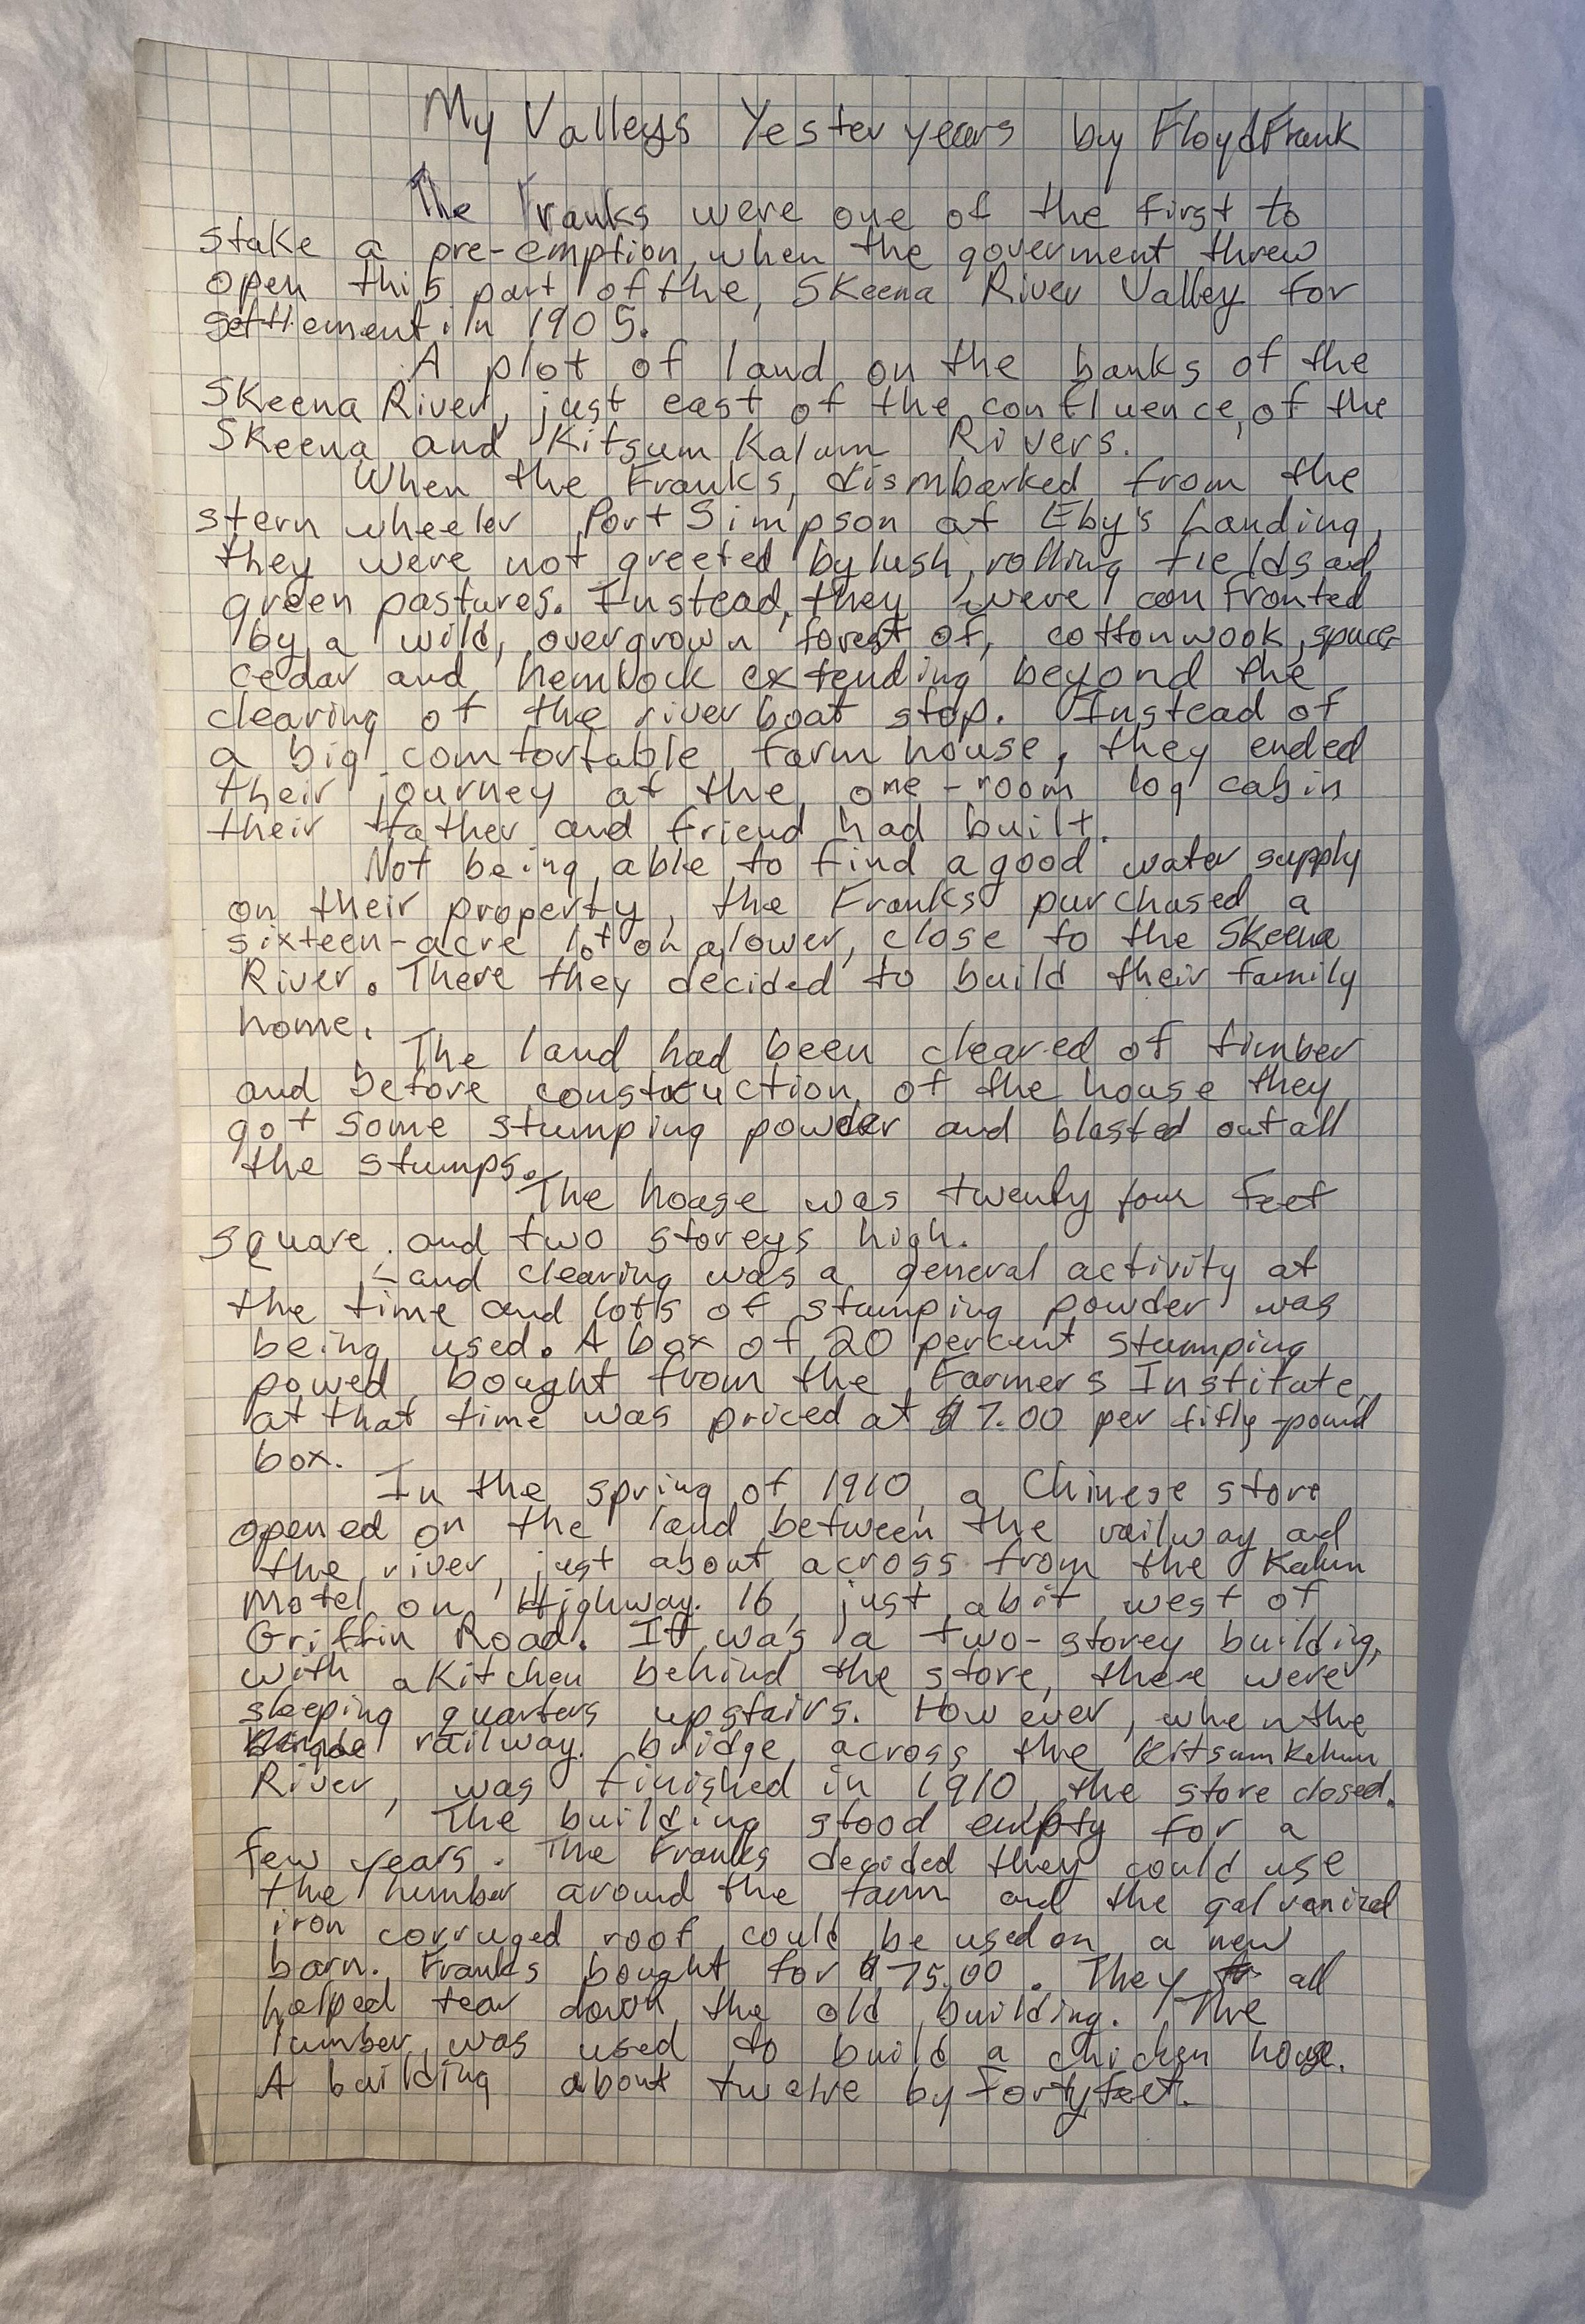 My Valleys Yesteryears by Floyd Frank
The Franks were one of the first to
stake a pre-emption, when the goverment threw
open this part of the, Skeena River Valley for
settlement in 1905.
A plot of land on the banks of the
Skeena River, just east of the confluence, of the
Skeena and Kitsum Kalum Rivers.
When the Franks, dismbarked from the
stern wheeler Port Simpson at Eby's Landing,
they were not greeted by lush, rolling fields and
green pastures. Instead, they were confronted
by a wild, overgrown forest of, cottonwook, spuce
cedar and hembock extending beyond the
clearing of the river boat stop. Instead of
a big comfortable farm house, they ended
their journey at the one-room log cabin
their father and friend had built.
Not being able to find a good water supply
on their property, the Franks purchased a
sixteen-acre lot on a lower, close to the Skeena
River. There they decided to build their family
home.
The land had been cleared of timber
and before construction of the house they
got some stumping powder and blasted out all
the stumps.
The house was twenty four feet
square and two storeys high.
Land clearing was a general activity at
the time and lots of stumping powder was
being used. A box of 20 percent stumping
powed bought from the Farmers Institute,
at that time was priced at $7.00 per fifty-pound
box.
In the spring of 1910, a Chinese store
opened on the land between the railway ad
the river, just about across from the Kalum
Motel on Highway. 16, just a bit west of
Griffin Road. It was a two-storey building,
with a kitchen behind the store, there were
sleeping quarters upstairs. However, when the
railway. bridge across the Kitsumkalum
River, was finished in 1910, the store closed.
The building stood empty for a
few years. The Franks decided they could use
the lumber around the farm and the galvanized
iron corruged roof could be used on a new
barn. Franks bought for $75.00. They all
helped tear down the old building. The
lumber was used to build a chicken house.
A building about twelve by forty feet.